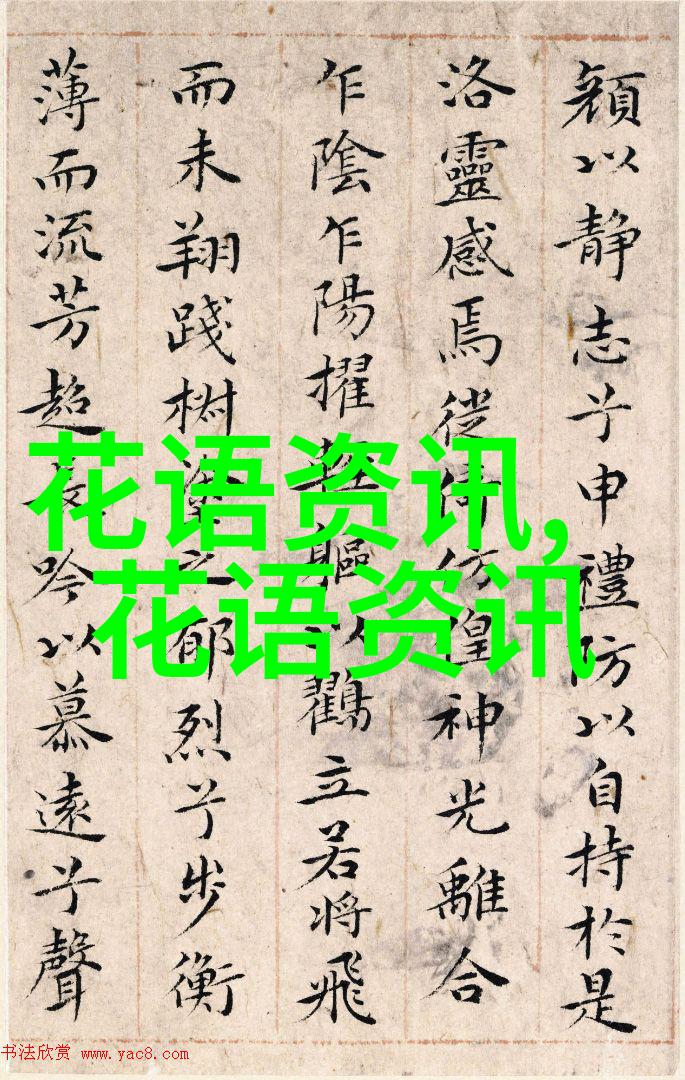 顏以静志兮申禮防以自持於是
洛靈感焉徙倚仿偟神光離合
乍陰乍陽擢輕軀以鸛立若將飛
而未翔踐樹塗之郁烈兮步衡
薄而流芳超長吟以慕遠兮聲
花语资讯,
花语资讯
书法欣赏 www.yac8.com